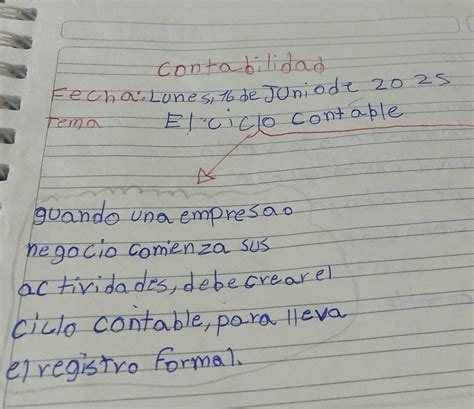 Contabilidad
Fecha: Lunes, 16 de JUNio de 2025
Tema El ciclo contable
guando una empresa o
negocio comienza sus
actividades, debe crear el
ciclo contable, para lleva
el registro formal.